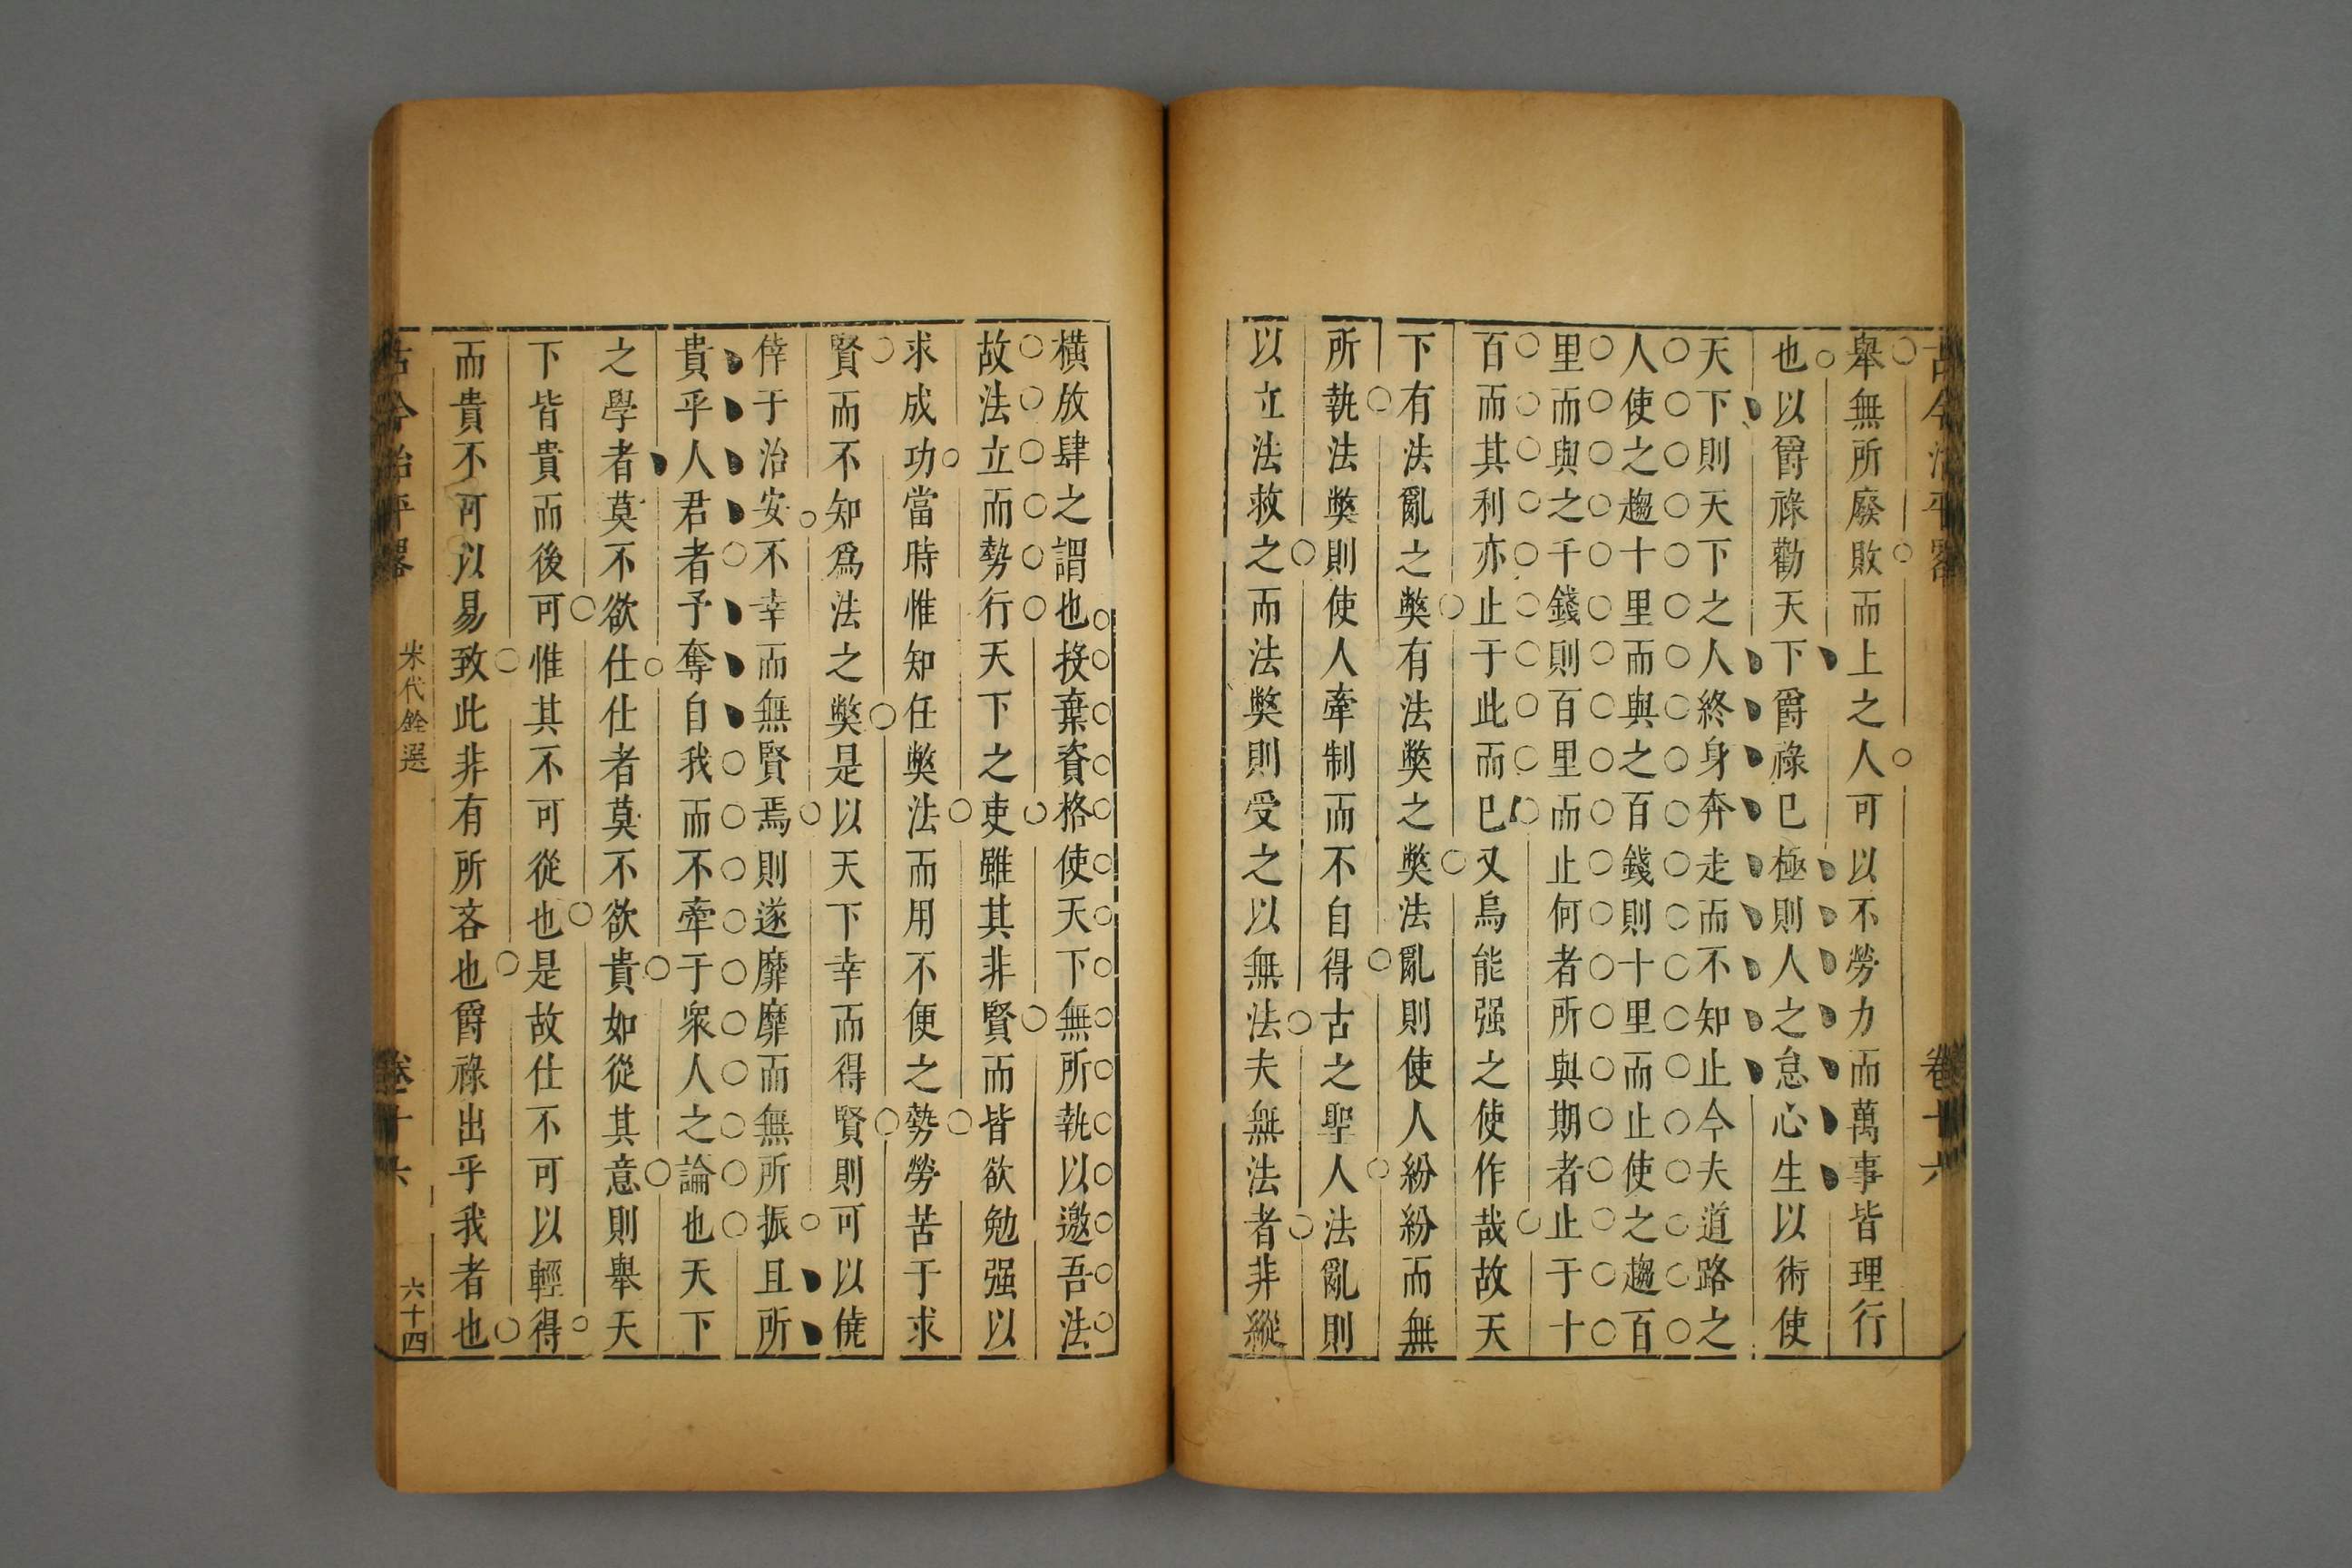 古今治平畧 卷十六
舉無所廢敗而上之人可以不勞力而萬事皆理行
也以爵祿勸天下爵祿已極則人之怠心生以術使
天下則天下之人終身奔走而不知止今夫道路之
人使之趨十里而與之百錢則十里而止使之趨百
里而與之千錢則百里而止何者所與期者止于十
百而其利亦止于此而已又烏能强之使作哉故天
下有法亂之弊有法弊之弊法亂則使人紛紛而無
所執法弊則使人牽制而不自得古之聖人法亂則
以立法救之而法弊則受之以無法夫無法者非縱
橫放肆之謂也投棄資格使天下無所執以邀吾法
故法立而勢行天下之吏雖其非賢而皆欲勉强以
求成功當時惟知任弊法而用不便之勢勞苦于求
賢而不知爲法之弊是以天下幸而得賢則可以僥
倖于治安不幸而無賢焉則遂靡靡而無所振且所
貴乎人君者予奪自我而不牽于衆人之論也天下
之學者莫不欲仕仕者莫不欲貴如從其意則舉天
下皆貴而後可惟其不可從也是故仕不可以輕得
而貴不可以易致此非有所吝也爵祿出乎我者也
古今治平畧 宋代銓選 卷十六 六十四